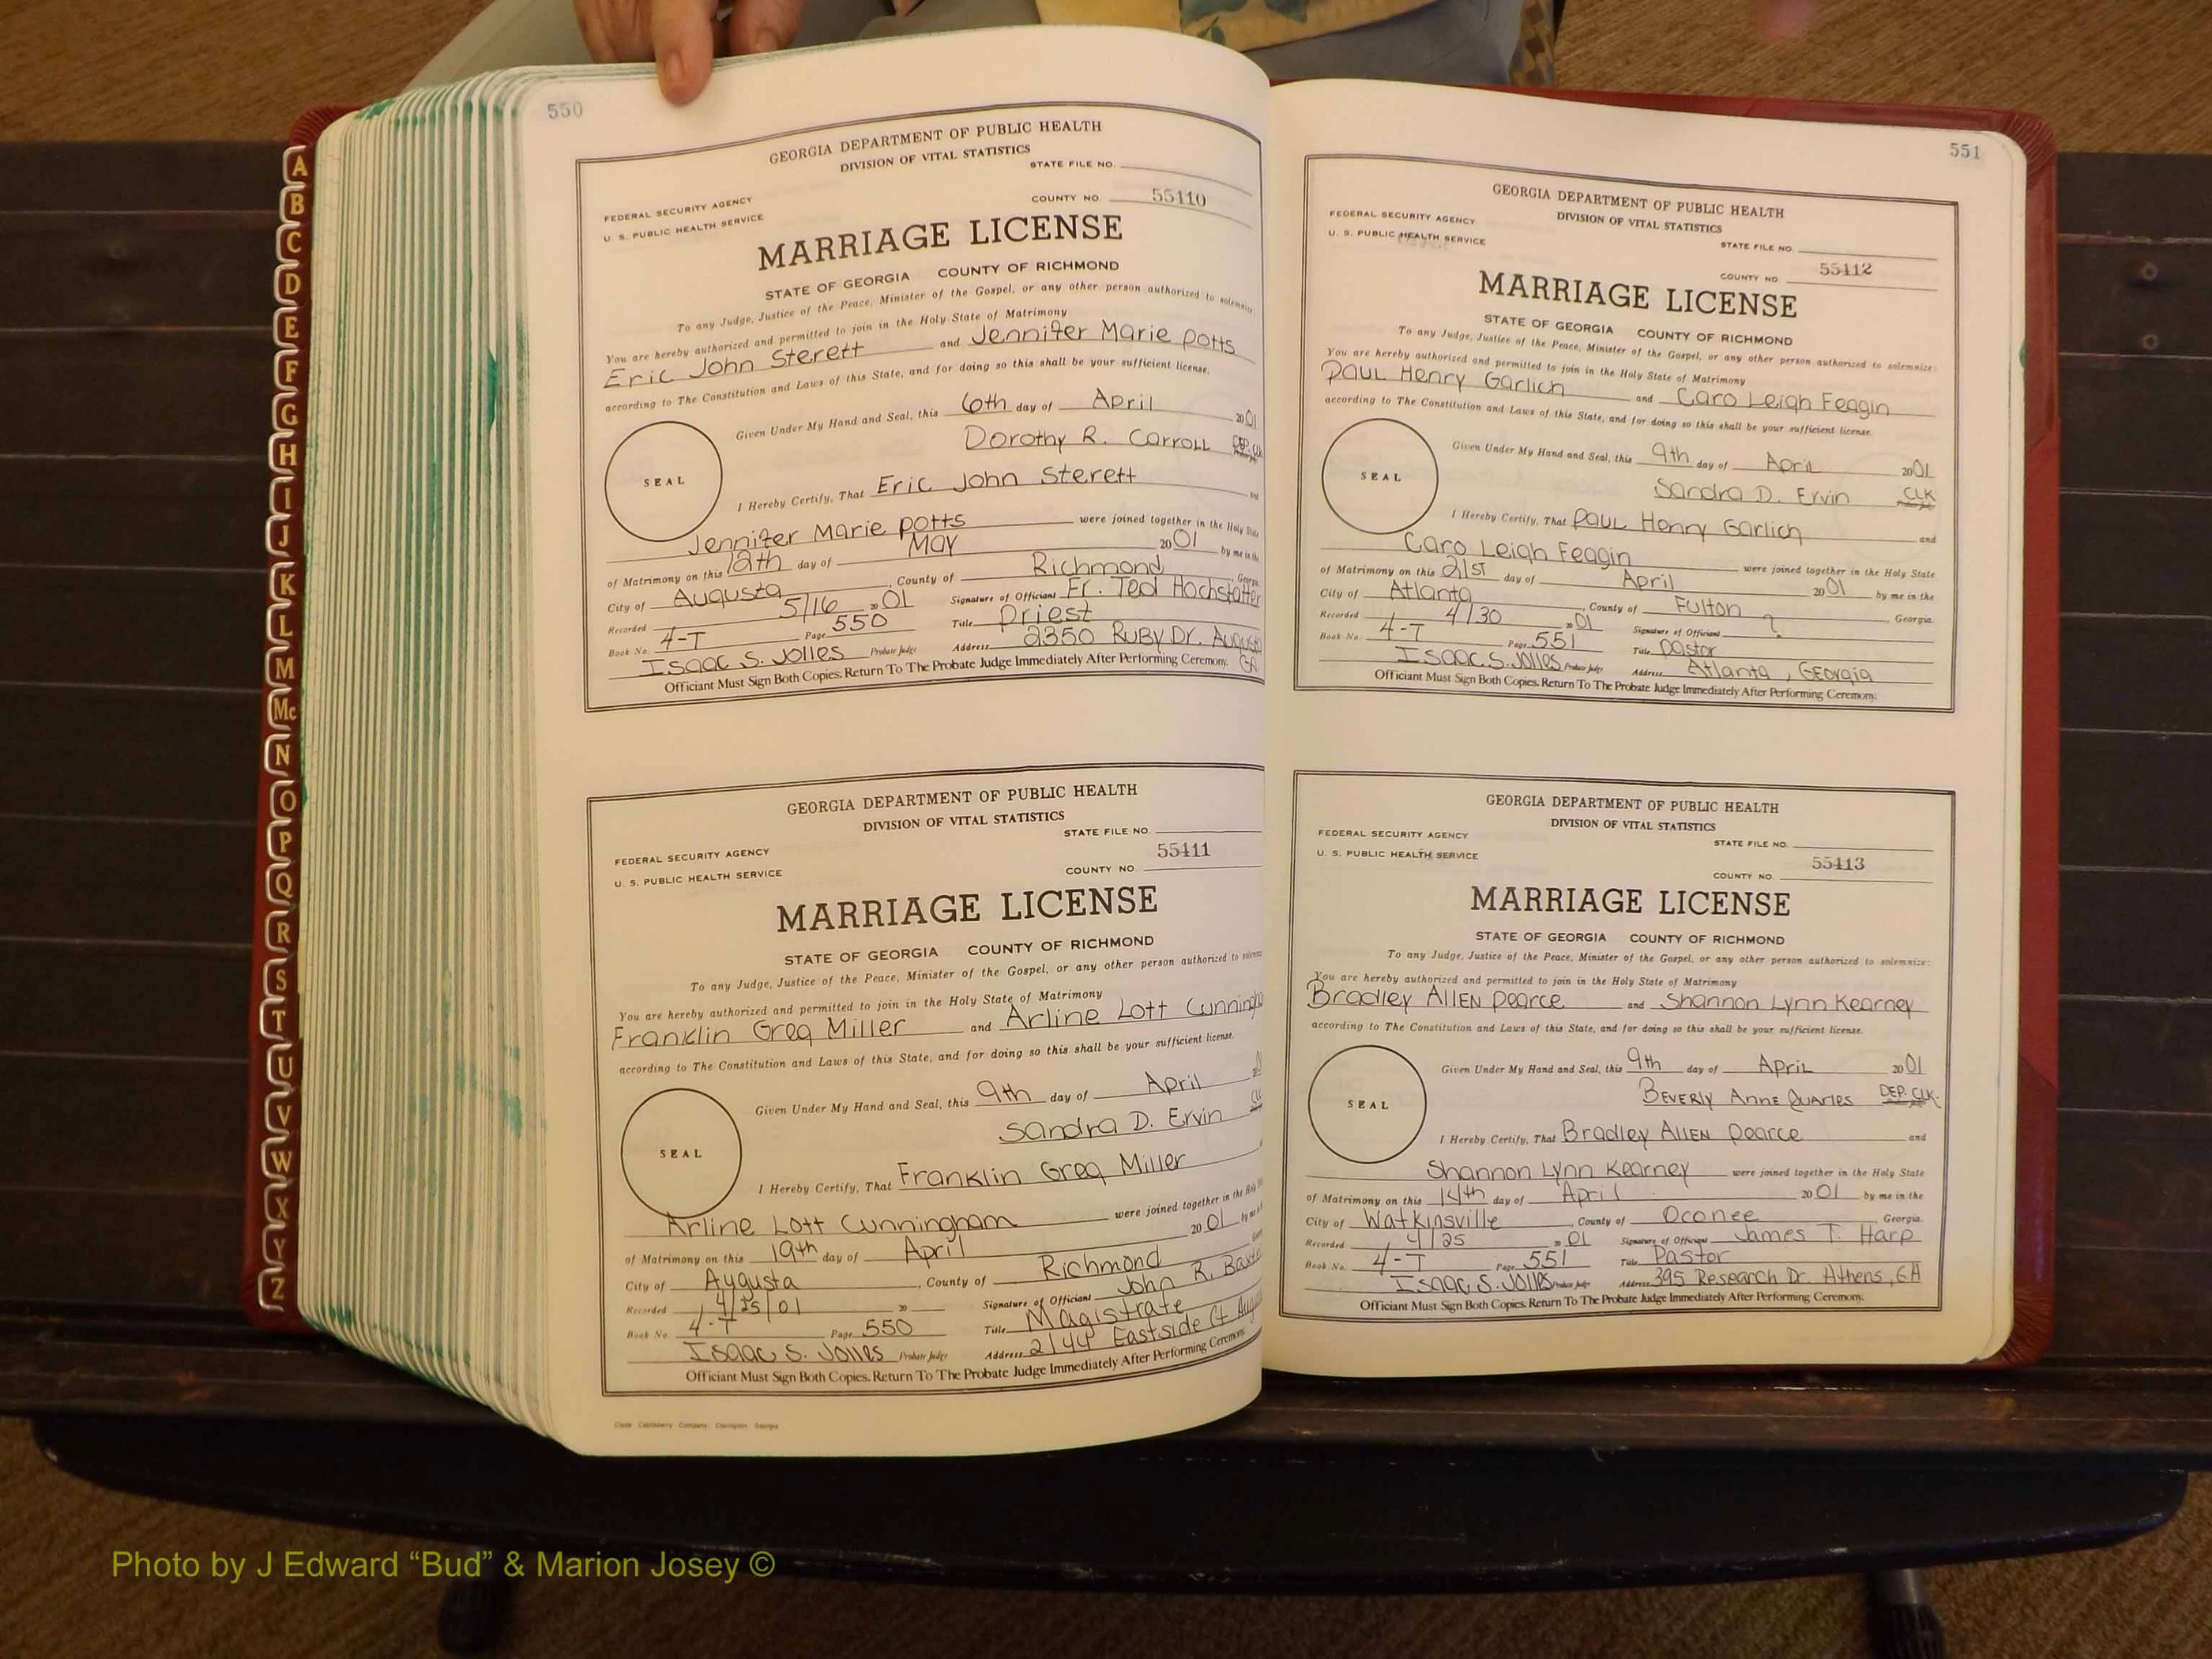 550
GEORGIA DEPARTMENT OF PUBLIC HEALTH
DIVISION OF VITAL STATISTICS
STATE FILE NO.
FEDERAL SECURITY AGENCY
U. S. PUBLIC HEALTH SERVICE
COUNTY NO. 55110
MARRIAGE LICENSE
STATE OF GEORGIA COUNTY OF RICHMOND
To any Judge, Justice of the Peace, Minister of the Gospel, or any other person authorized to solemnize:
You are hereby authorized and permitted to join in the Holy State of Matrimony
Eric John Sterett and Jennifer Marie Potts
according to The Constitution and Laws of this State, and for doing so this shall be your sufficient license.
Given Under My Hand and Seal, this 6th day of April 2001
Dorothy R. Carroll DEP. CLK
SEAL
I Hereby Certify, That Eric John Sterett and
Jennifer Marie Potts were joined together in the Holy State
of Matrimony on this 12th day of May 2001 by me in the
City of Augusta, County of Richmond, Georgia
Recorded 5/16 2001 Signature of Officiant Fr. Ted Hochstatter
Book No. 4-T Page 550 Title Priest
Isaac S. Jolles Probate Judge Address 2350 Ruby Dr. Augusta GA
Officiant Must Sign Both Copies. Return To The Probate Judge Immediately After Performing Ceremony.
GEORGIA DEPARTMENT OF PUBLIC HEALTH
DIVISION OF VITAL STATISTICS
STATE FILE NO.
FEDERAL SECURITY AGENCY
U. S. PUBLIC HEALTH SERVICE
COUNTY NO. 55111
MARRIAGE LICENSE
STATE OF GEORGIA COUNTY OF RICHMOND
To any Judge, Justice of the Peace, Minister of the Gospel, or any other person authorized to
You are hereby authorized and permitted to join in the Holy State of Matrimony
Franklin Greg Miller and Arline Lott Cunningh
according to The Constitution and Laws of this State, and for doing so this shall be your sufficient license.
Given Under My Hand and Seal, this 9th day of April
Sandra D. Ervin
SEAL
I Hereby Certify, That Franklin Greg Miller
Arline Lott Cunningham were joined together in the Holy
of Matrimony on this 19th day of April 2001 by me
City of Augusta, County of Richmond
Recorded 4/25/01 20 Signature of Officiant John R. Baxte
Book No. 4-T Page 550 Title Magistrate
Isaac S. Jolles Probate Judge Address 2144 Eastside Ct Augus
Officiant Must Sign Both Copies. Return To The Probate Judge Immediately After Performing Ceremony.
551
GEORGIA DEPARTMENT OF PUBLIC HEALTH
DIVISION OF VITAL STATISTICS
FEDERAL SECURITY AGENCY
U. S. PUBLIC HEALTH SERVICE
STATE FILE NO.
COUNTY NO. 55112
MARRIAGE LICENSE
STATE OF GEORGIA COUNTY OF RICHMOND
To any Judge, Justice of the Peace, Minister of the Gospel, or any other person authorized to solemnize:
You are hereby authorized and permitted to join in the Holy State of Matrimony
Paul Henry Garlich and Caro Leigh Feagin
according to The Constitution and Laws of this State, and for doing so this shall be your sufficient license.
Given Under My Hand and Seal, this 9th day of April 2001
Sandra D. Ervin CLK
SEAL
I Hereby Certify, That Paul Henry Garlich and
Caro Leigh Feagin were joined together in the Holy State
of Matrimony on this 21st day of April 2001 by me in the
City of Atlanta, County of Fulton, Georgia
Recorded 4/30 01 Signature of Officiant ?
Book No. 4-T Page 551 Title Pastor
Isaac S. Jolles Probate Judge Address Atlanta, Georgia
Officiant Must Sign Both Copies. Return To The Probate Judge Immediately After Performing Ceremony.
GEORGIA DEPARTMENT OF PUBLIC HEALTH
DIVISION OF VITAL STATISTICS
FEDERAL SECURITY AGENCY
U. S. PUBLIC HEALTH SERVICE
STATE FILE NO.
COUNTY NO. 55113
MARRIAGE LICENSE
STATE OF GEORGIA COUNTY OF RICHMOND
To any Judge, Justice of the Peace, Minister of the Gospel, or any other person authorized to solemnize:
You are hereby authorized and permitted to join in the Holy State of Matrimony
Bradley Allen Pearce and Shannon Lynn Kearney
according to The Constitution and Laws of this State, and for doing so this shall be your sufficient license.
Given Under My Hand and Seal, this 9th day of April 2001
Beverly Anne Quarles DEP. CLK.
SEAL
I Hereby Certify, That Bradley Allen Pearce and
Shannon Lynn Kearney were joined together in the Holy State
of Matrimony on this 14th day of April 2001 by me in the
City of Watkinsville, County of Oconee, Georgia.
Recorded 4/25 2001 Signature of Officiant James T. Harp
Book No. 4-T Page 551 Title Pastor
Isaac S. Jolles Probate Judge Address 395 Research Dr. Athens, GA
Officiant Must Sign Both Copies. Return To The Probate Judge Immediately After Performing Ceremony.
A
B
C
D
E
F
G
H
I
J
K
L
M
Mc
N
O
P
Q
R
S
T
U
V
W
X
Y
Z
Photo by J Edward “Bud” & Marion Josey ©